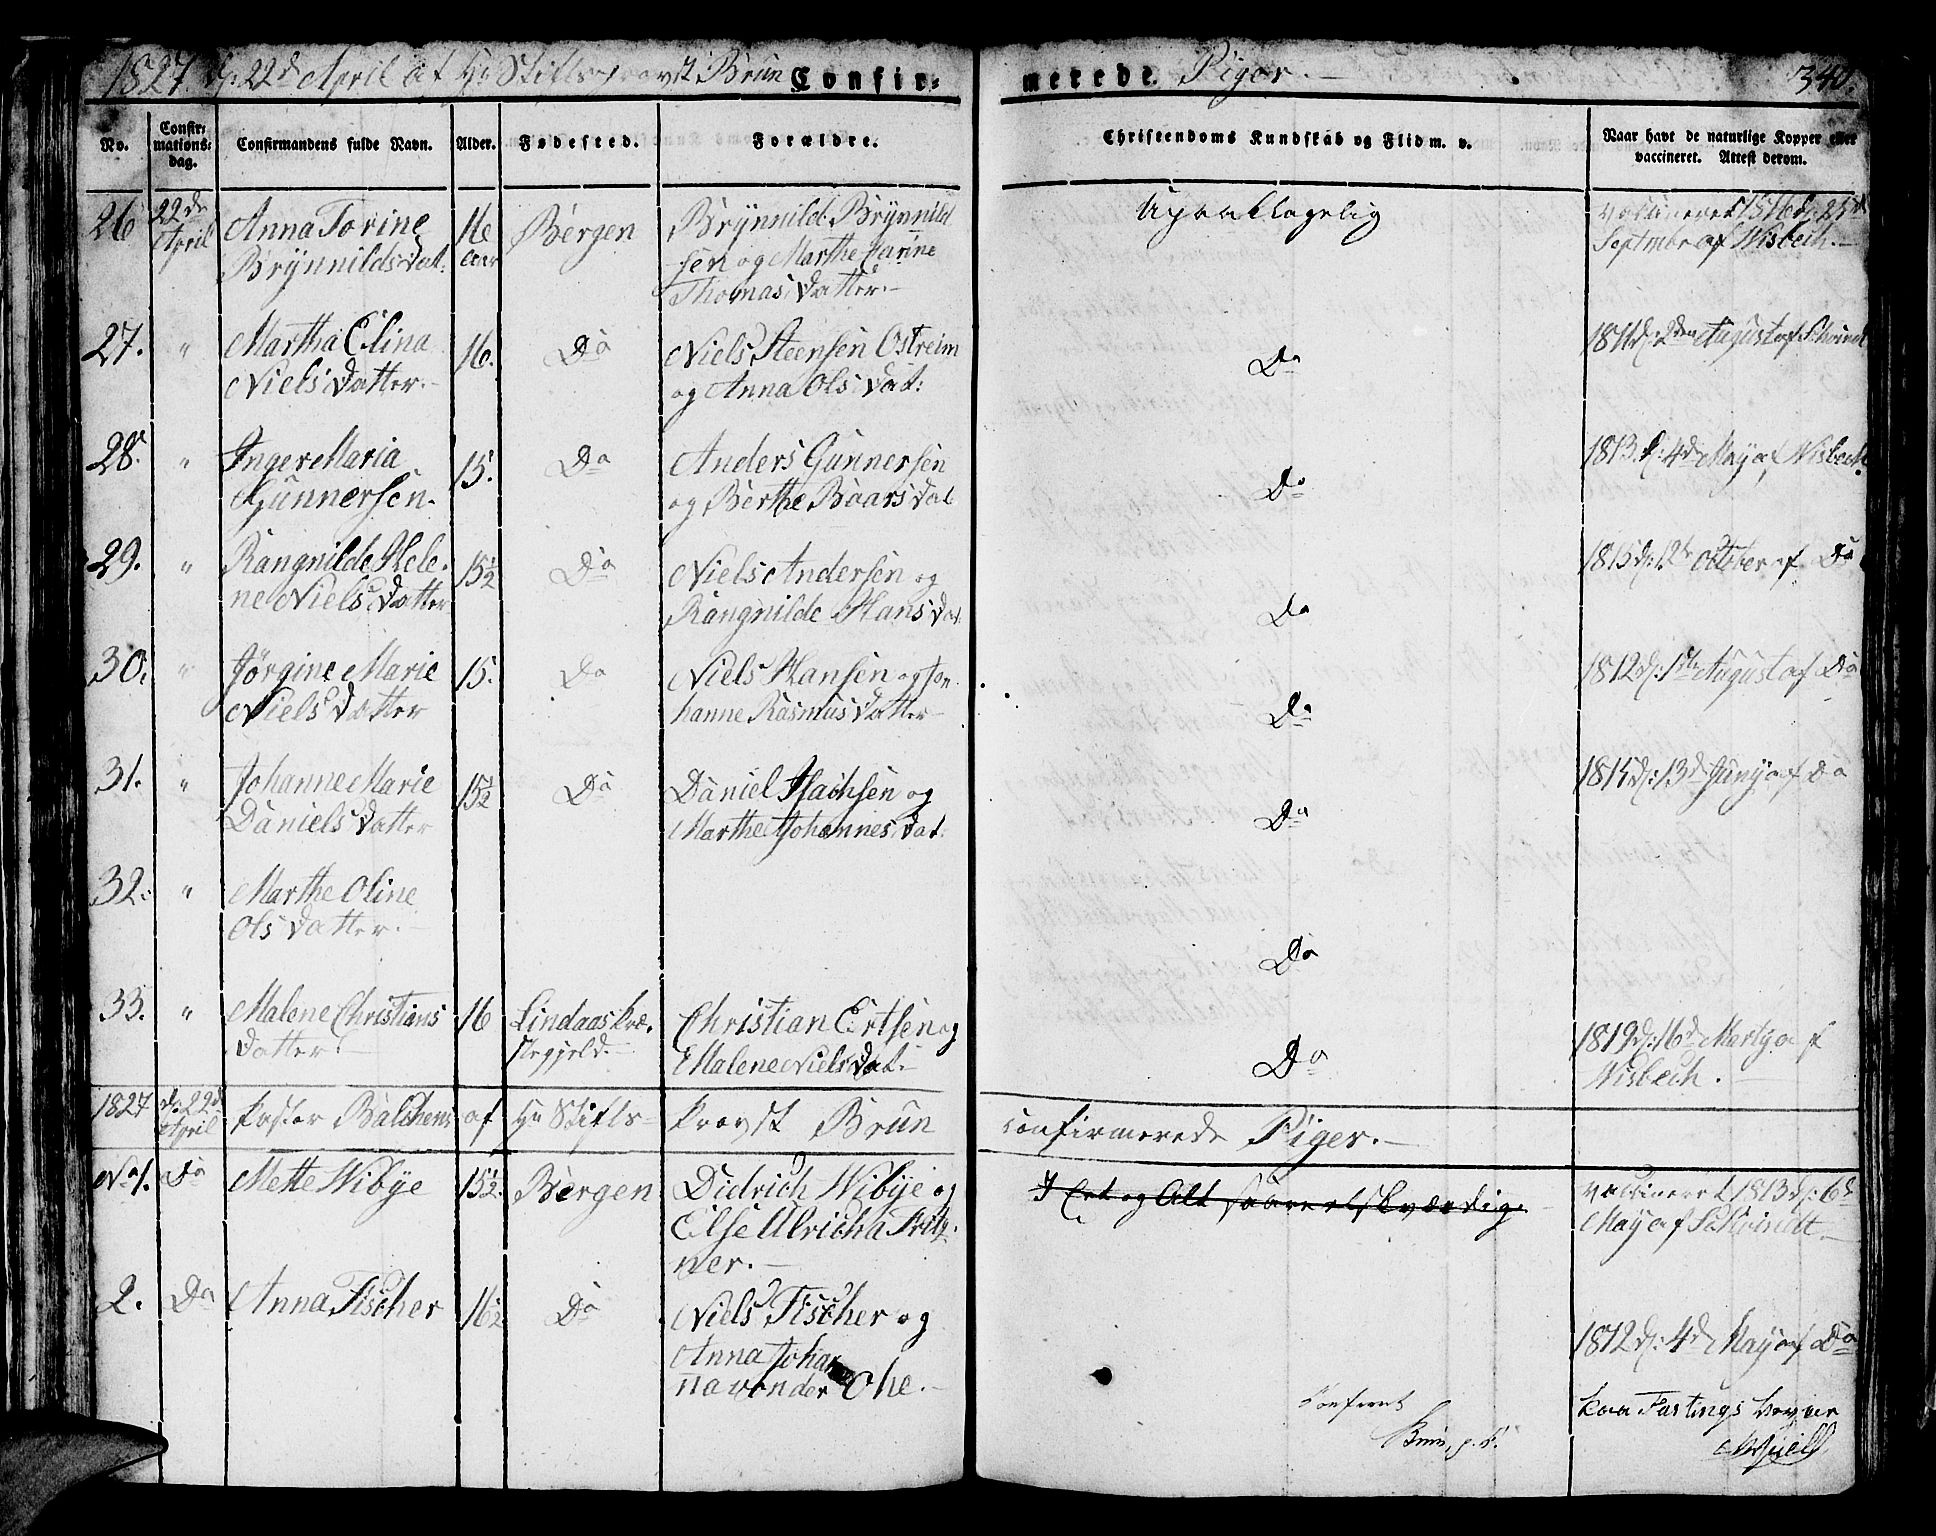 1827 d: 22d April af Hr Stiftsprovst Brun Confir= merede Piger.
340.
No. Confir= mations= dag. Confirmandens fulde Navn. Alder. Fødested. Forældre. Christendoms Kundskab og Flid m. v. Naar havt de naturlige Kopper eller vaccineret. Attest derom.
26 22de April Anna Torine Brynnilds dat: 16 aar Bergen Brynnild Brynnild sen og Marthe Carine Thomas Datter. Upaaklagelig vaccineret 1816 d: 25d Septmbr af Wisbech.
27. " Martha Elina Niels Datter. 16. Do Niels Steensen Ostreim og Anna Ols dat: Do 1811 d: 2den August af Schvindt
28. " Inger Maria Gunnersen. 15. Do Anders Gunnersen og Berthe Baars dat Do 1813 d: 4de May af Wisbech
29. " Rangnilde Hele= ne Niels Datter 15½ Do Niels Andersen og Rangnilde Hans dat. Do 1815 d: 12te October af Do
30. " Jørgine Marie Niels Datter 15. Do Niels Hansen og Jo= hanne Rasmus datter Do 1812 d: 1ste August af Do
31. " Johanne Marie Daniels Datter 15½ Do Daniel Isachsen og Marthe Johannes dat. Do 1815 d: 13d Juny af Do
32. " Marthe Oline Ols Datter. Do
33. " Malene Christians Datter. 16 Lindaas Præ= stegjeld. Christian Ertsen og Malene Niels dat. Do 1819 d: 16d Marty af Wisbech.
1827 d: 22d April Pastor Balchens af Hr Stifts= Provst Brun confirmerede Piger.
No 1. Do Mette Wibye 15½ Bergen Didrich Wibye og Else Ulricha Fritz= ner. I Eet og Alt saare elskværdig. vaccineret 1813 d: 6d May af Schvindt
2. Do Anna Fischer 16½ Do Niels Fischer og Anna Johan na von der Ohe. 1812 d: 4d May af Do
Confereret
Brun,
paa Fastings